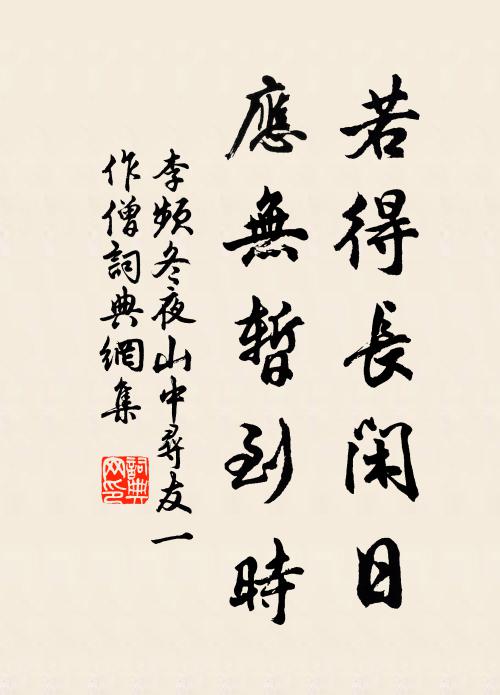 若得長闲日
應無暫到時
李頻冬夜山中尋友一
作僧詞典網集
詞典
网印